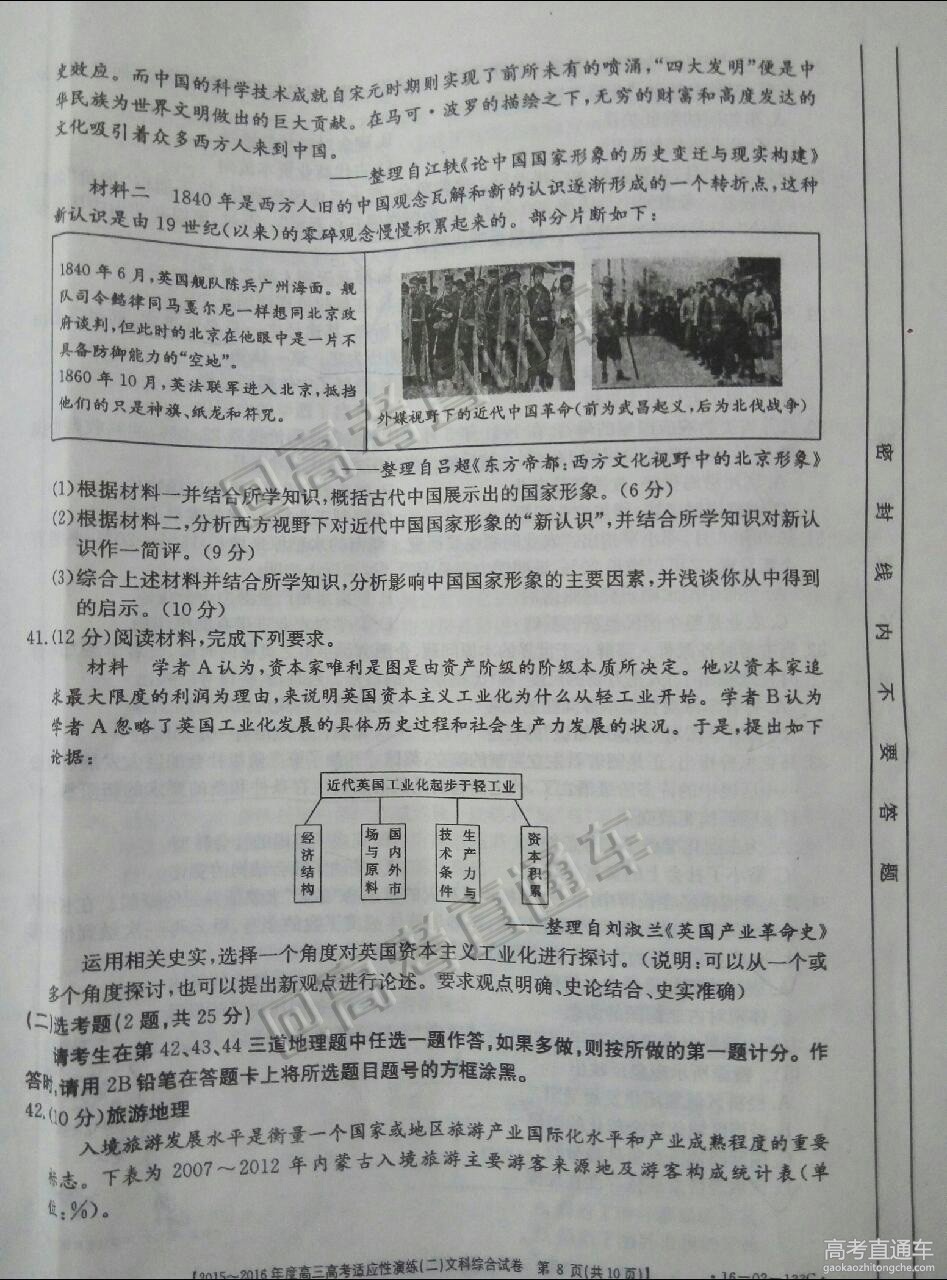 史效应。而中国的科学技术成就自宋元时期则实现了前所未有的喷涌,“四大发明”便是中
华民族为世界文明做出的巨大贡献。在马可·波罗的描绘之下,无穷的财富和高度发达的
文化吸引着众多西方人来到中国。
——整理自江轶《论中国国家形象的历史变迁与现实构建》
材料二 1840年是西方人旧的中国观念瓦解和新的认识逐渐形成的一个转折点,这种
新认识是由19世纪(以来)的零碎观念慢慢积累起来的。部分片断如下:
1840年6月,英国舰队陈兵广州海面。舰
队司令懿律同马戛尔尼一样想同北京政
府谈判,但此时的北京在他眼中是一片不
具备防御能力的“空地”。
1860年10月,英法联军进入北京,抵挡
他们的只是神旗、纸龙和符咒。
外媒视野下的近代中国革命(前为武昌起义,后为北伐战争)
——整理自吕超《东方帝都:西方文化视野中的北京形象》
(1)根据材料一并结合所学知识,概括古代中国展示出的国家形象。(6分)
(2)根据材料二,分析西方视野下对近代中国国家形象的“新认识”,并结合所学知识对新认
识作一简评。(9分)
(3)综合上述材料并结合所学知识,分析影响中国国家形象的主要因素,并浅谈你从中得到
的启示。(10分)
41.(12分)阅读材料,完成下列要求。
材料 学者A认为,资本家唯利是图是由资产阶级的阶级本质所决定。他以资本家追
求最大限度的利润为理由,来说明英国资本主义工业化为什么从轻工业开始。学者B认为
学者A忽略了英国工业化发展的具体历史过程和社会生产力发展的状况。于是,提出如下
论据:
近代英国工业化起步于轻工业
经济结构
国内外市场与原料
生产力与技术条件
资本积累
——整理自刘淑兰《英国产业革命史》
运用相关史实,选择一个角度对英国资本主义工业化进行探讨。(说明:可以从一个或
多个角度探讨,也可以提出新观点进行论述。要求观点明确、史论结合、史实准确)
(二)选考题(2题,共25分)
请考生在第42、43、44三道地理题中任选一题作答,如果多做,则按所做的第一题计分。作
答时,请用2B铅笔在答题卡上将所选题目题号的方框涂黑。
42.(10分)旅游地理
入境旅游发展水平是衡量一个国家或地区旅游产业国际化水平和产业成熟程度的重要
标志。下表为2007～2012年内蒙古入境旅游主要游客来源地及游客构成统计表(单
位:%)。
【2015～2016年度高三高考适应性演练(二)文科综合试卷 第8页(共10页)】
密封线内不要答题
高考直通车
高考直通车
高考直通车
gaokaozhitongche.com